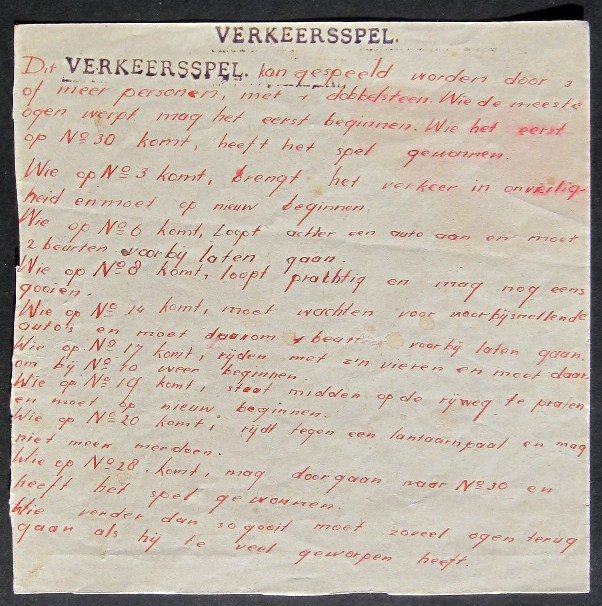 VERKEERSSPEL.
Dit VERKEERSSPEL. kan gespeeld worden door 3
of meer personen, met 1 dobbelsteen. Wie de meeste
ogen werpt mag het eerst beginnen. Wie het eerst
op No 30 komt, heeft het spel gewonnen.
Wie op No 3 komt, brengt het verkeer in onveilig-
heid en moet op nieuw beginnen.
Wie op No 6 komt, loopt achter een auto aan en moet
2 beurten voorbij laten gaan.
Wie op No 8 komt, loopt prachtig en mag nog eens
gooien.
Wie op No 14 komt, moet wachten voor voorbijsnellende
auto's en moet daarom 1 beurt voorbij laten gaan.
Wie op No 17 komt, rijden met z'n vieren en moet daar-
om bij No 10 weer beginnen.
Wie op No 19 komt, staat midden op de rijweg te praten
en moet op nieuw beginnen.
Wie op No 20 komt, rijdt tegen een lantaarnpaal en mag
niet meer meedoen.
Wie op No 28 komt, mag doorgaan naar No 30 en
heeft het spel gewonnen.
Wie verder dan 30 gooit moet zoveel ogen terug
gaan als hij te veel geworpen heeft.